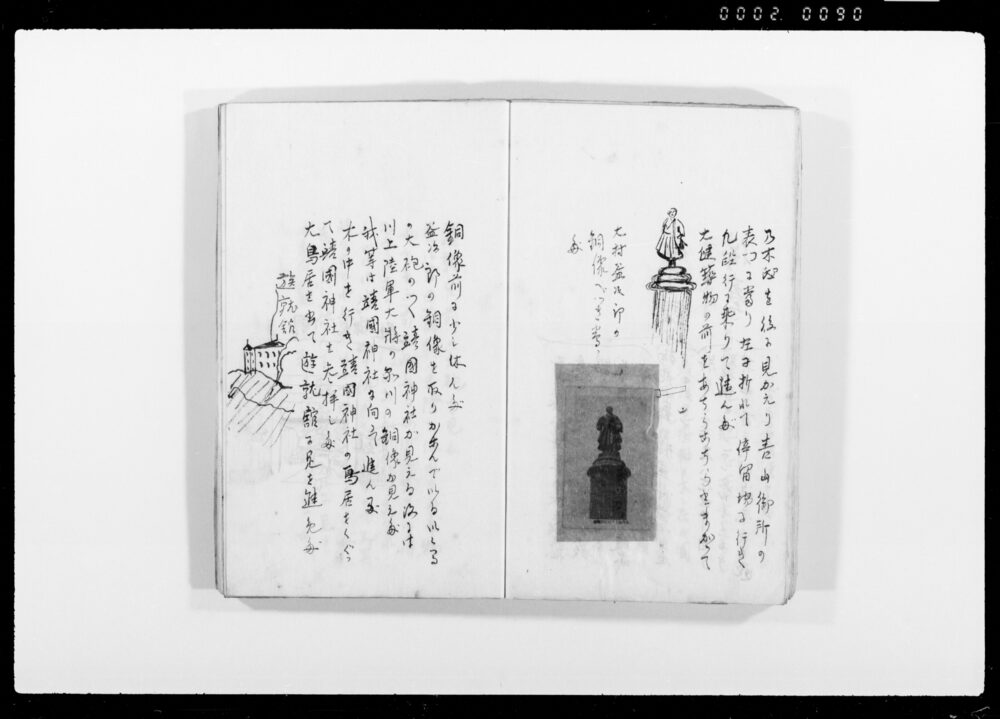 0002 0090
乃木邸を後に見かえり青山御所の
表門に当り左に折れて停留場に行き
九段行に乗りて進んだ
大建築物の前をあちらこちらとまがって
大村益次郎の
銅像へつき当
だ
銅像前に少し休んだ
益次郎の銅像を取りかこんでいる
の大砲のつく靖國神社が見える
川上陸軍大将の銅像が見えた
我等は靖國神社に向って進んだ
木の中を行き靖國神社の鳥居をくぐっ
て靖國神社を参拝した
大鳥居を出て遊就館に見を進めた
遊就館